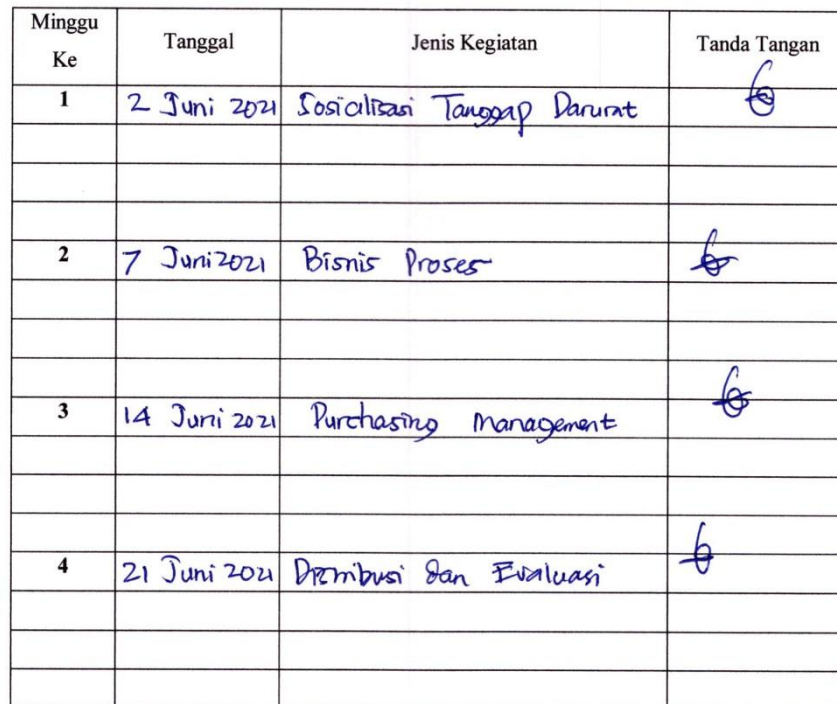 Minggu Ke Tanggal Jenis Kegiatan Tanda Tangan
1 2 Juni 2021 Sosialisasi Tanggap Darurat
2 7 Juni 2021 Bisnis Proses
3 14 Juni 2021 Purchasing Management
4 21 Juni 2021 Distribusi dan Evaluasi